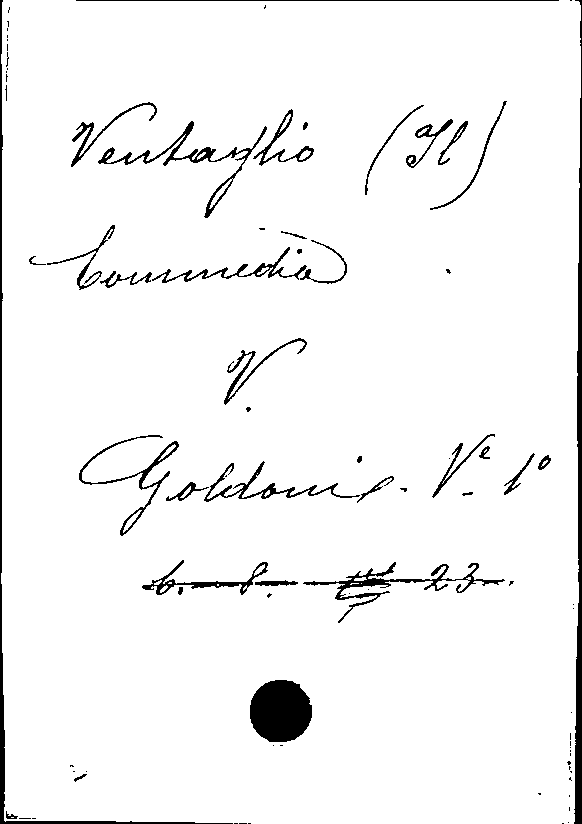 Ventaglio (Il)
Commedia
V.
Goldoni - Ve 1º
6. 8. 23.